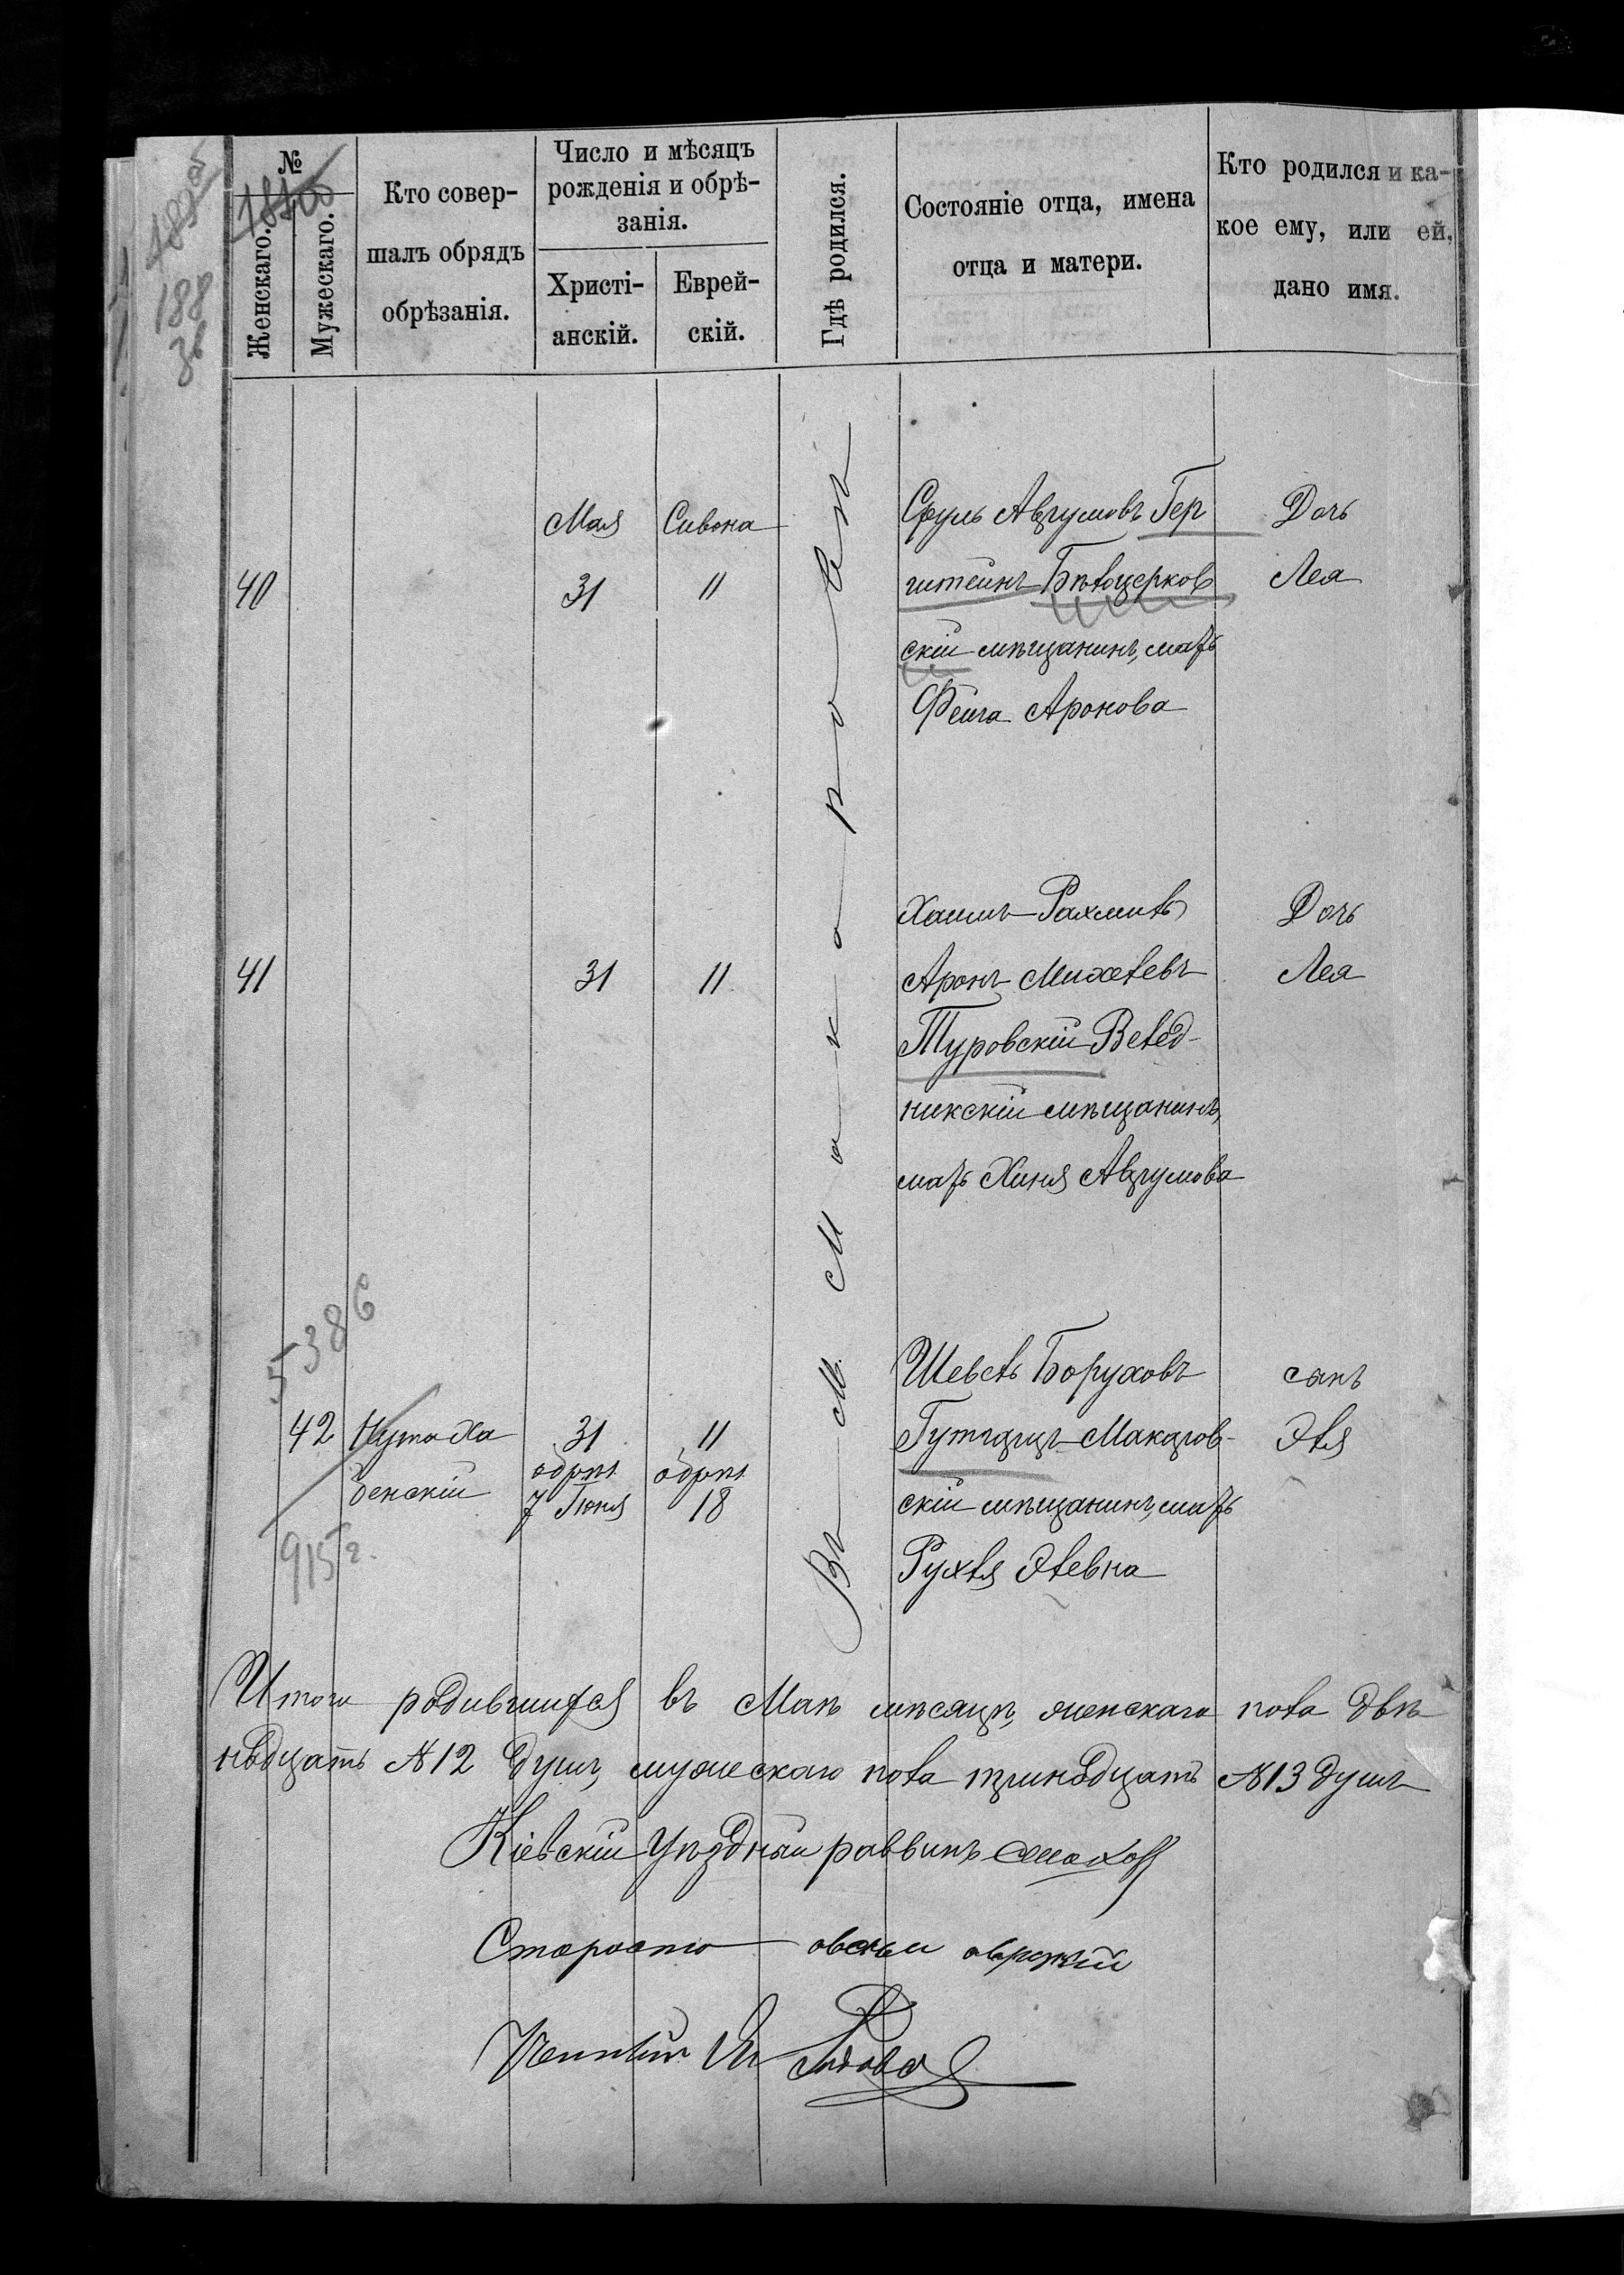 №
Женскаго.
Мужескаго.
Кто совер-
шалъ обрядъ
обрѣзанія.
Число и мѣсяцъ
рожденія и обрѣ-
занія.
Христі-
анскій.
Еврей-
скій.
Гдѣ родился.
Состояніе отца, имена
отца и матери.
Кто родился и ка-
кое ему, или ей,
дано имя.
188
Въ м. Макаровѣ
Мая Сивона
40 31 11
Сруль Аврумовъ Гер
штейнъ Бѣлоцерков
скій мѣщанинъ, мать
Фейга Аронова
Дочь
Лея
41 31 11
Хаимъ Рахмиль
Аронъ Михелевъ
Туровскій Велед-
никскій мѣщанинъ,
мать Хиня Аврумова
Дочь
Лея
5386
42 Нута Ха
бенскій
31
обрѣз.
7 Іюня
11
обрѣз.
18
915 г.
Шевель Боруховъ
Гутгарцъ Макаров-
скій мѣщанинъ, мать
Рухля Элевна
сынъ
Эля
Итого родившихся въ Маѣ мѣсяцѣ, женскаго пола двѣ
надцать №12 душъ, мужескаго пола тринадцать №13 душъ
Кіевскій Уѣздный раввинъ
Староста